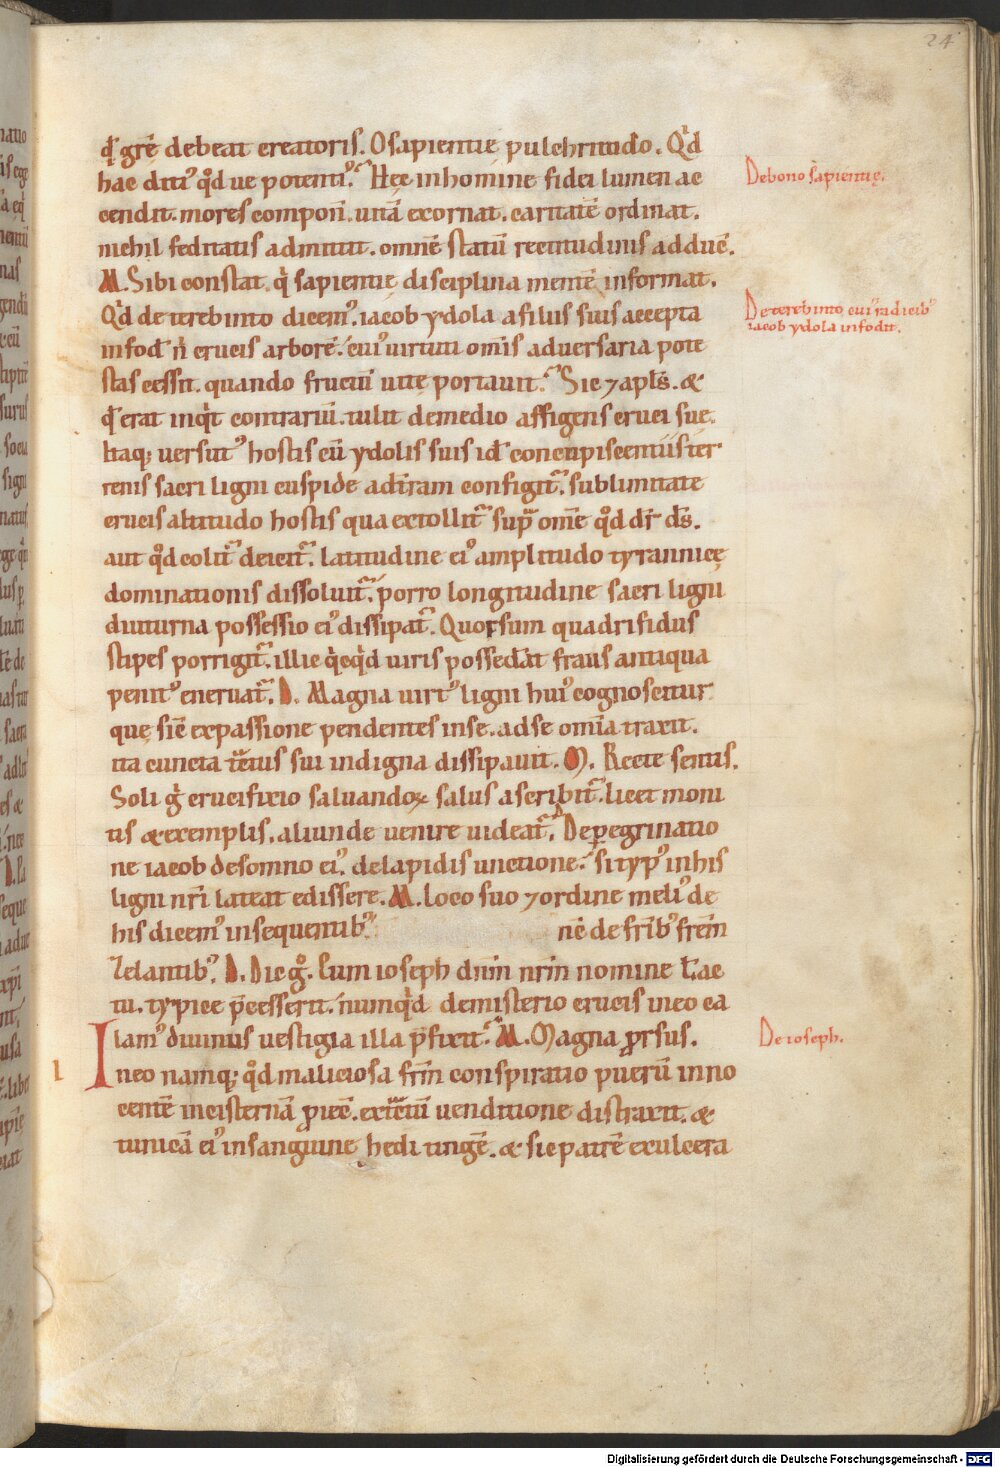 24
qd grē debeat creatoris. O sapientie pulchritudo. Qͥd
hac ditiꝰ qͦd ue potentiꝰ? Hęc in homine fidei lumen ac
cendit. mores componͭ. uitā exornat. caritatē ordinat.
nichil feditatis admittit. omnē statū rectitudinis adducͭ.
M. Sibi constat qͥ sapientię disciplina mentē informat.
Qͥd de terebinto dicemꝰ. iacob ydola a filiis suis accepta
infodͭ nͥ crucis arborē. cuiꝰ uirtuti omīs aduersaria pote
stas cessit. quando fructū uitę portauit? Sic ⁊ apl̄s. &
qd erat inqͥt contrariū. tulit de medio affigens cruci suę.
Itaq; uersutꝰ hostis cū ydolis suis id ē concupiscentiis ter
renis sacri ligni cuspide ad terram configitͬ. sublimitate
crucis altitudo hostis qua extollitͬ supͣ omē qͦd dr̄ ds̄.
aut qͦd colitͬ deicitͬ. latitudine eiꝰ amplitudo tyrannicę
dominationis dissoluitͬ. porro longitudine sacri ligni
diuturna possessio eiꝰ dissipatͬ. Quorsum quadrifidus
stipes porrigitͬ. illic qͥcqͥd uiris possederat fraus antiqua
penitꝰ eneruatͬ. D. Magna uirtꝰ ligni huiꝰ cognoscitur
quę sic̄ ex passione pendentes in se. ad se omīa traxit.
ita cuncta tͣctus sui indigna dissipauit. M. Recte sentis.
Soli gͦ crucifixio saluandoꝝ salus ascribitͬ. licet moni
tis & exemplis. aliunde uenire uideatͬ. D. De peregrinatio
ne iacob de somno eiꝰ. de lapidis unctione. si typꝰ in his
ligni nr̄i lateat edissere. M. Loco suo ⁊ ordine meliꝰ de
his dicemꝰ in sequentibꝰ. nē de fr̄ibꝰ fr̄em
zelantibꝰ. D. Dic gͦ. Cum ioseph dn̄m nr̄m nomine ł ac
tu. typice p̄cesserit. numqͥd de misterio crucis in eo ea
lamꝰ diuinus uestigia illa p̄fixit? M. Magna prorsus.
In eo namq; qͦd maliciosa fr̄m conspiratio puerū inno
centē in cisternā proiecͭ. extͣctū uenditione distraxit. &
tunicā eiꝰ in sanguine hedi tingēs. & sic patrē exulcera
De bono sapientię.
De terebinto cuiꝰ radicibꝰ
iacob ydola infodit.
De ioseph.
Digitalisierung gefördert durch die Deutsche Forschungsgemeinschaft - DFG